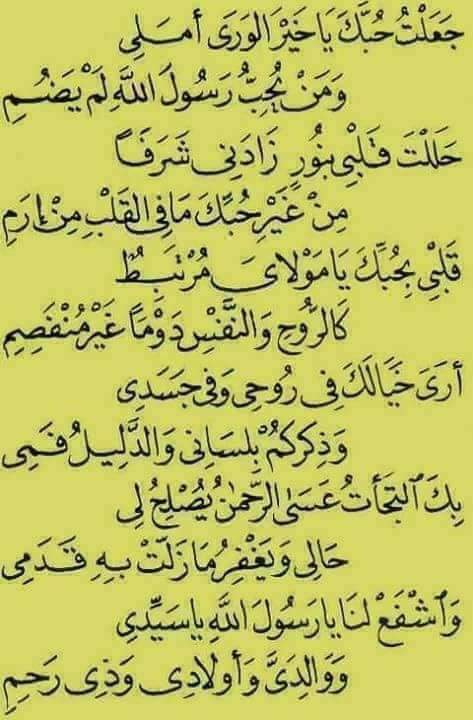 جَعَلْتُ حُبَّكَ يَا خَيْرَ الوَرَى أَمَلِي
وَمَنْ يُحِبُّ رَسُولَ اللَّهِ لَمْ يَضُمِ
حَلَلْتَ قَلْبِي بِنُورٍ زَادَنِي شَرَفًا
مِنْ غَيْرِ حُبِّكَ مَا فِي القَلْبِ مِنْ إِرَمِ
قَلْبِي بِحُبِّكَ يَا مَوْلَاىَ مُرْتَبِطٌ
كَالرُّوحِ وَالنَّفْسِ دَوْمًا غَيْرَ مُنْفَصِمِ
أَرَى خَيَالَكَ فِي رُوحِي وَفِي جَسَدِي
وَذِكْرُكُمْ بِلِسَانِي وَالدَّلِيلُ فَمِي
بِكَ ٱلْتَجَأْتُ عَسَى الرَّحْمٰنُ يُصْلِحُ لِي
حَالِي وَيَغْفِرُ مَا زَلَّتْ بِهِ قَدَمِي
وَٱشْفَعْ لَنَا يَا رَسُولَ اللَّهِ يَا سَيِّدِي
وَوَالِدَىَّ وَأَوْلَادِي وَذِي رَحِمِ